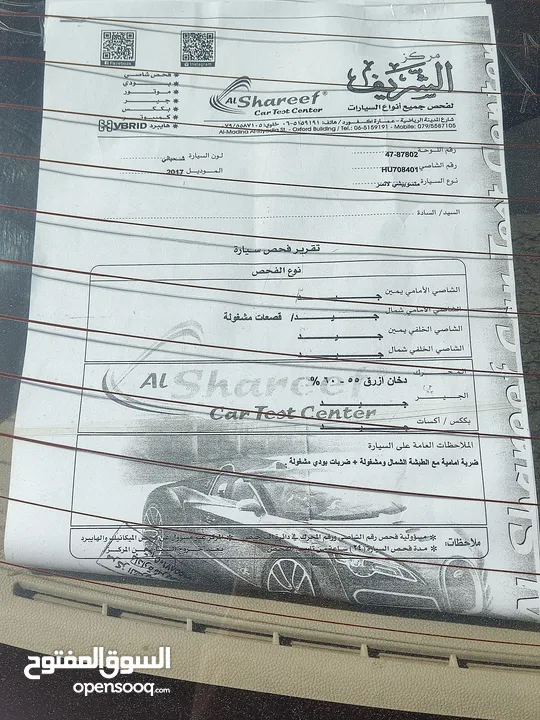 Facebook
Instagram
مركز
الشريف
لفحص جميع أنواع السيارات
AL Shareef
Car Test Center
فحص شاصي
بودي
موتور
جير
بكس
كمبيوتر
هايبرد HYBRID
شارع المدينة الرياضية - عمارة اكسفورد / هاتف: ٠٦-٥١٥٩١٩١ خلوي: ٠٧٩/٥٥٨٧١٠٥
Al-Madina Al-Riyadia St. - Oxford Building / Tel.: 06-5159191 - Mobile: 079/5587105
رقم اللوحة 47-87802
لون السيارة
رقم الشاصي HU708401
الموديل 2017
نوع السيارة متسوبيشي لانسر
السيد/ السادة
تقرير فحص سيارة
نوع الفحص
الشاصي الأمامي يمين جيد
الشاصي الأمامي شمال جيد / قصعات مشغولة
الشاصي الخلفي يمين جيد
الشاصي الخلفي شمال جيد
المحرك دخان ازرق ٥٥ - ٦٠ %
الجير جيد
بكس / أكسات جيد
AL Shareef
Car Test Center
الملاحظات العامة على السيارة
ضربة امامية مع الطبشة الشمال ومشغولة + ضربات بودي مشغولة
ملاحظات:
مسؤولية فحص رقم الشاصي ورقم المحرك في دائرة الترخيص
مدة فحص السيارة (٢٤) ساعة من تاريخ الفحص
السوق المفتوح
opensooq.com